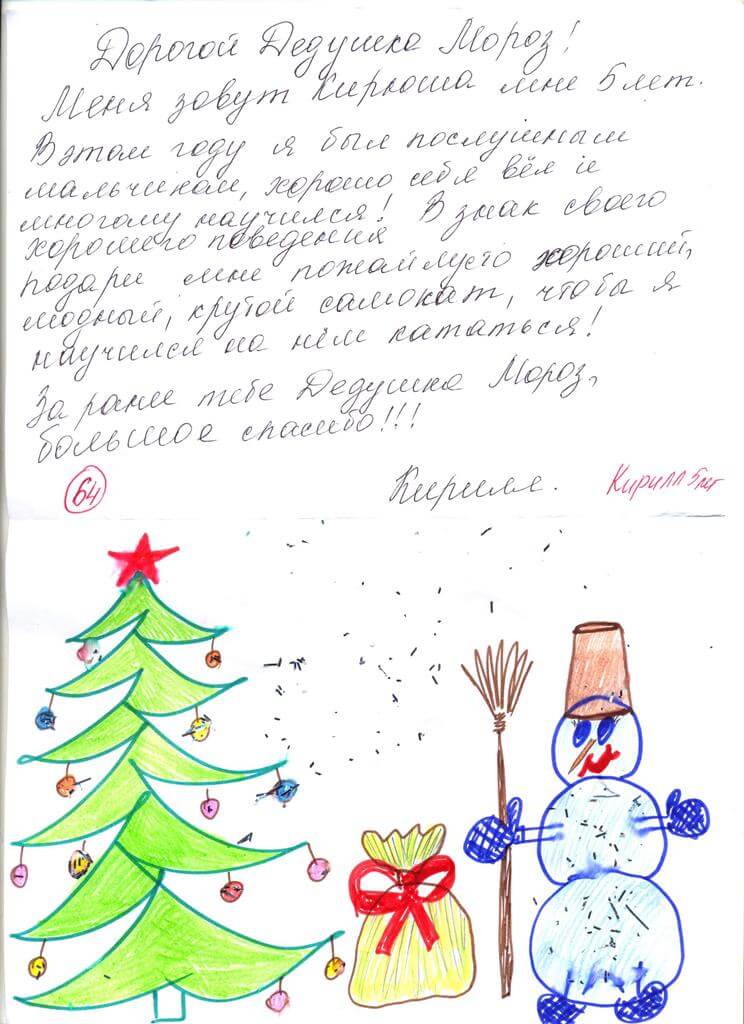 Дорогой Дедушка Мороз!
Меня зовут Кирюша мне 5 лет.
В этом году я был послушным
мальчиком, хорошо себя вёл и
многому научился! В знак своего
хорошего поведения
подари мне пожайлусто хороший,
модный, крутой самокат, чтобы я
научился на нём кататься!
За ранее тебе Дедушка Мороз,
большое спасибо!!!
64
Кирилл.
Кирилл 5 лет